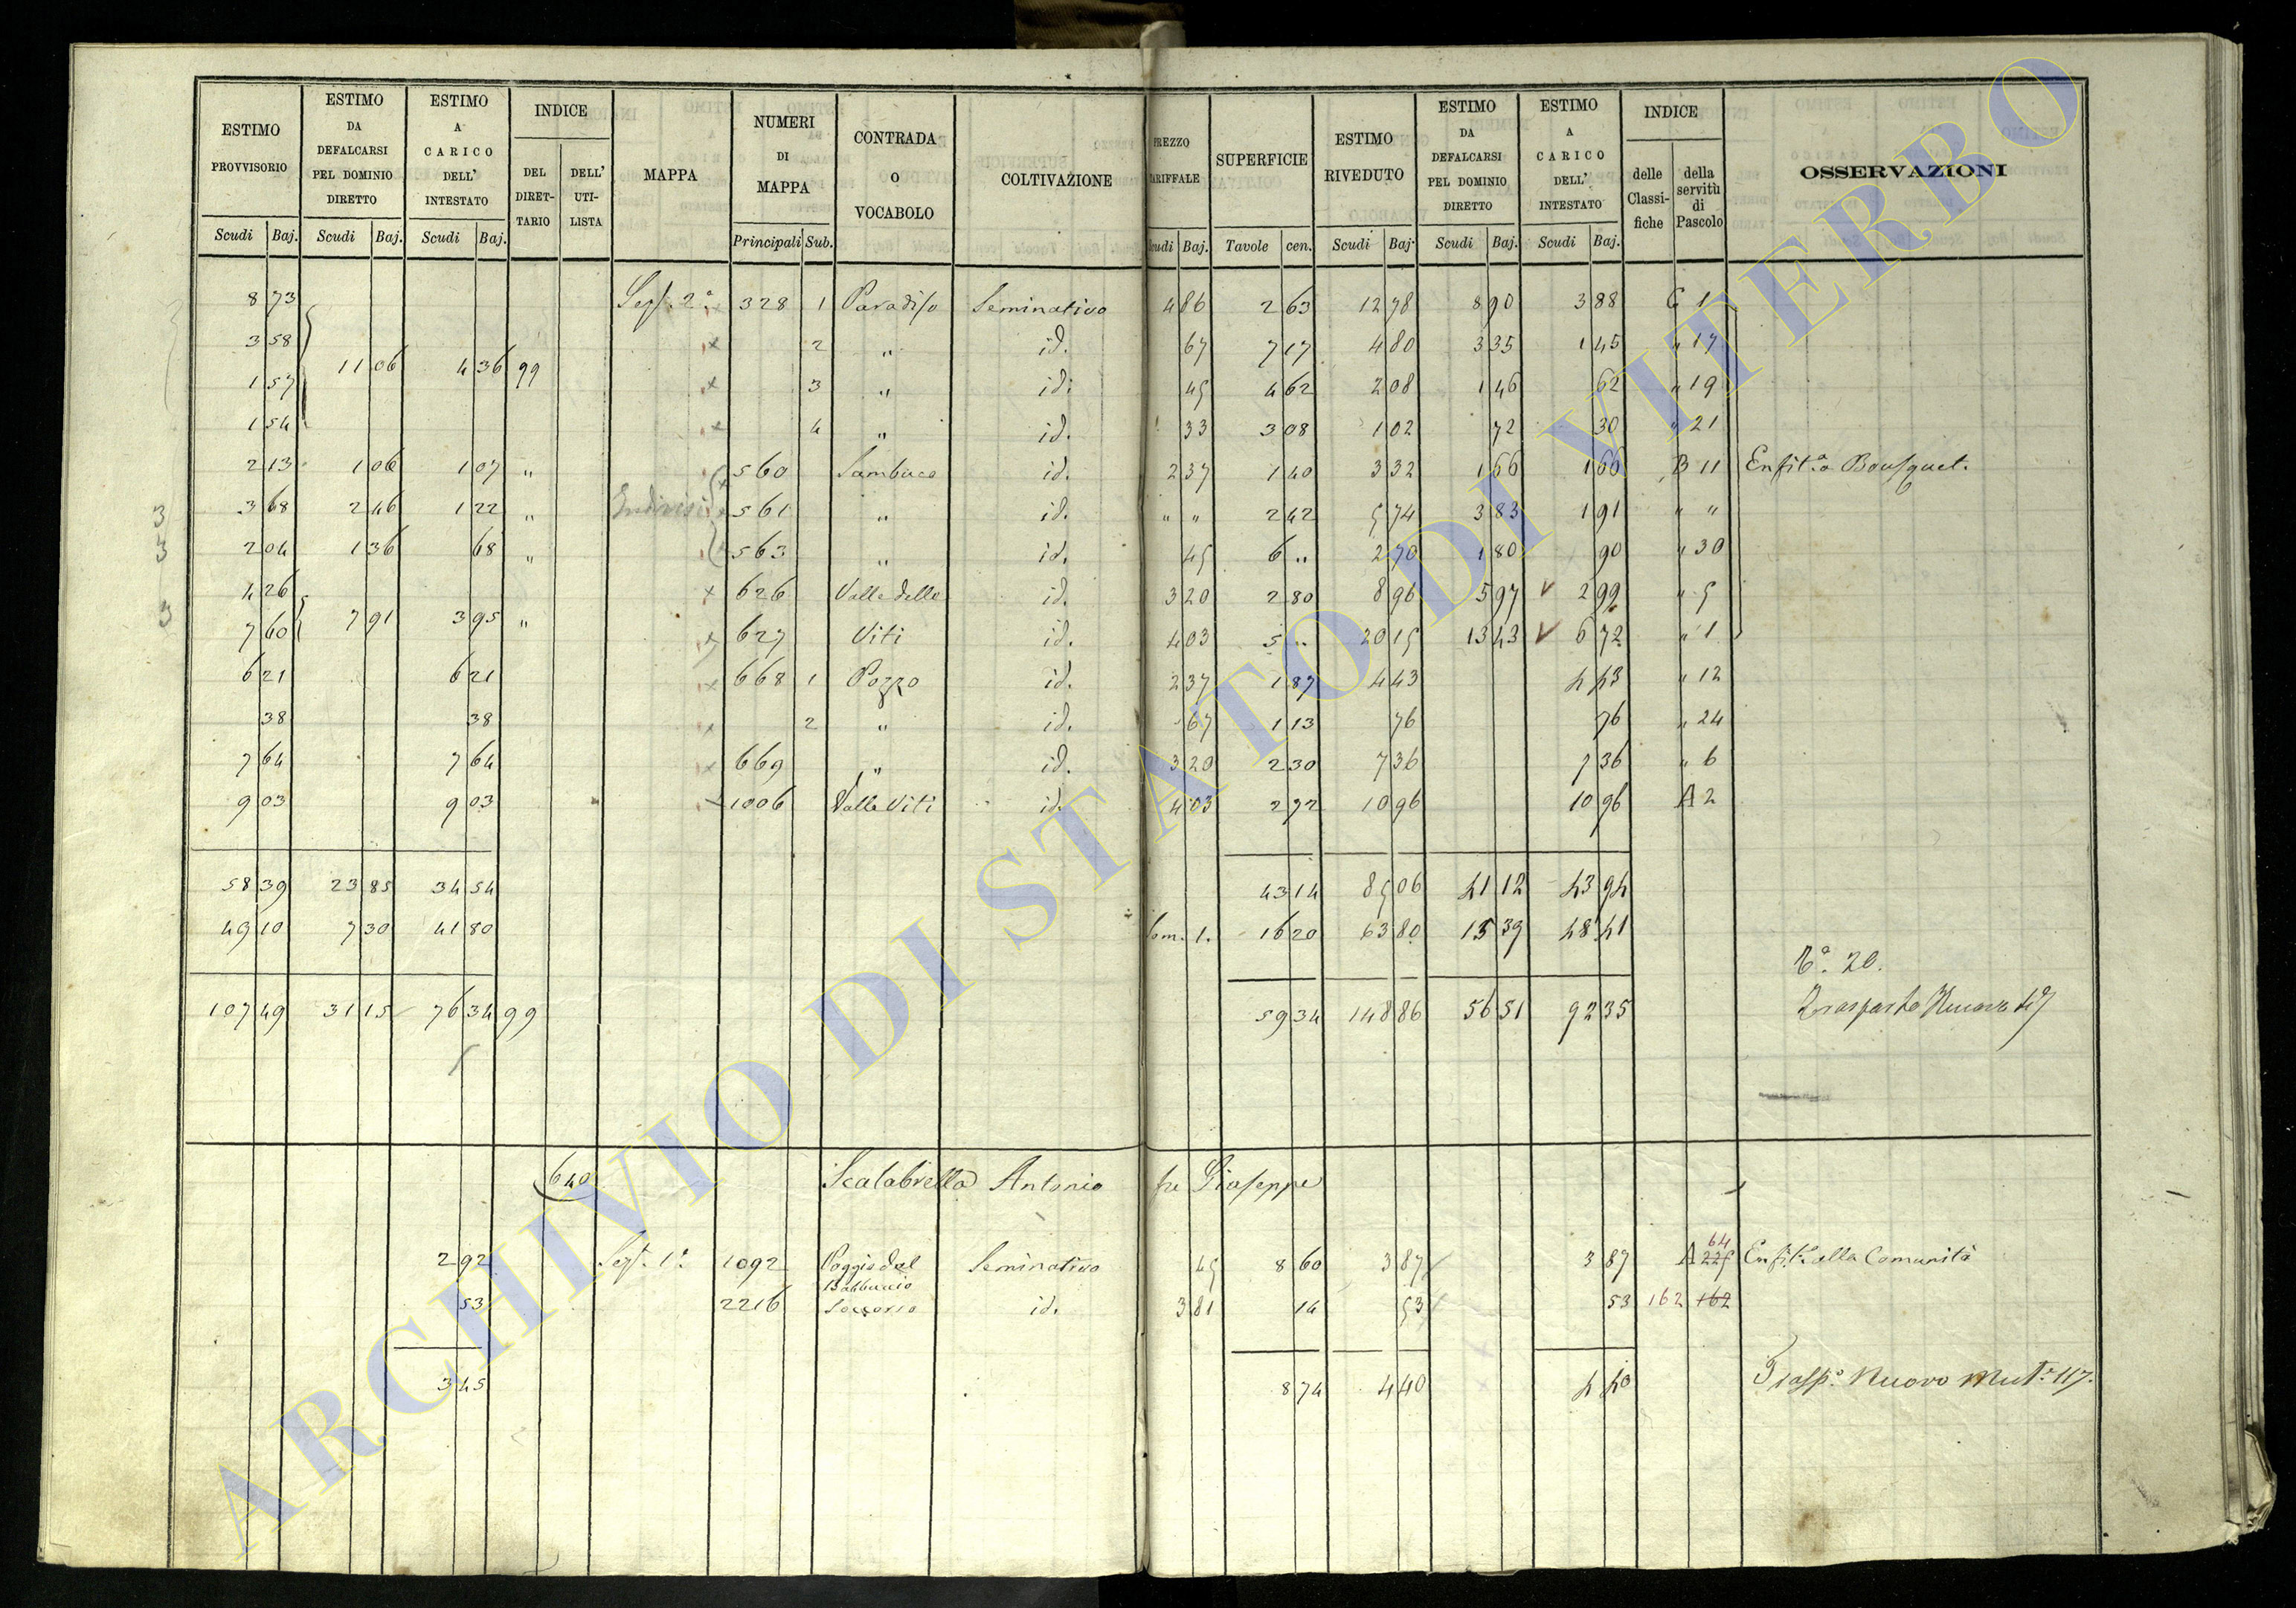 ESTIMO PROVVISORIO | ESTIMO DA DEFALCARSI PEL DOMINIO DIRETTO | ESTIMO A CARICO DELL' INTESTATO | INDICE | MAPPA | NUMERI DI MAPPA | CONTRADA O VOCABOLO | COLTIVAZIONE | PREZZO TARIFFALE | SUPERFICIE | ESTIMO RIVEDUTO | ESTIMO DA DEFALCARSI PEL DOMINIO DIRETTO | ESTIMO A CARICO DELL' INTESTATO | INDICE | OSSERVAZIONI
DEL DIRET-TARIO | DELL' UTI-LISTA | delle Classi-fiche | della servitù di Pascolo
Scudi Baj. | Scudi Baj. | Scudi Baj. | Principali Sub. | Scudi Baj. | Tavole cen. | Scudi Baj. | Scudi Baj. | Scudi Baj.
8 73 Sez. 2a. 328 1 Paradiso Seminativo 4 86 2 63 12 78 8 90 3 88 C 1
3 58 2 " id. 67 7 17 4 80 3 35 1 45 " 17
11 06 4 36 99
1 57 3 " id. 45 4 62 2 08 1 46 62 " 19
1 54 4 " id. 33 3 08 1 02 72 30 " 21
2 13 1 06 1 07 " 560 Sambuco id. 2 37 1 40 3 32 1 66 1 66 B 11 Enfita. a Bousquet.
3 3 68 2 46 1 22 " Indivisi 561 " id. " " 2 42 5 74 3 83 1 91 " "
3 2 04 1 36 68 " 563 " id. 45 6 " 2 70 1 80 90 " 30
4 26 626 Valle delle id. 3 20 2 80 8 96 5 97 2 99 " 5
3 7 91 3 95 "
7 60 627 Viti id. 4 03 5 " 20 15 13 43 6 72 " 1
6 21 6 21 668 1 Pozzo id. 2 37 1 87 4 43 4 43 " 12
38 38 2 " id. 67 1 13 76 76 " 24
7 64 7 64 669 " id. 3 20 2 30 7 36 7 36 " 6
9 03 9 03 1006 Valle Viti id. 4 03 2 72 10 96 10 96 A 2
58 39 23 85 34 54 43 14 85 06 41 12 43 94
49 10 7 30 41 80 Som. 1. 16 20 63 80 15 39 48 41
Va. 20.
107 49 31 15 76 34 99 59 34 148 86 56 51 92 35 Trasporto Nuovo 47
640 Scalabrella Antonio fu Giuseppe
64
2 92 Sez. 1a. 1092 Poggio del Seminativo 45 8 60 3 87 3 87 A 225 Enfita. alla Comunità
Babbuccio
53 2216 Soccorso id. 3 81 14 53 53 162 162
3 45 8 74 4 40 4 40 Trasp.o Nuovo Mut.a 117.
ARCHIVIO DI STATO DI VITERBO